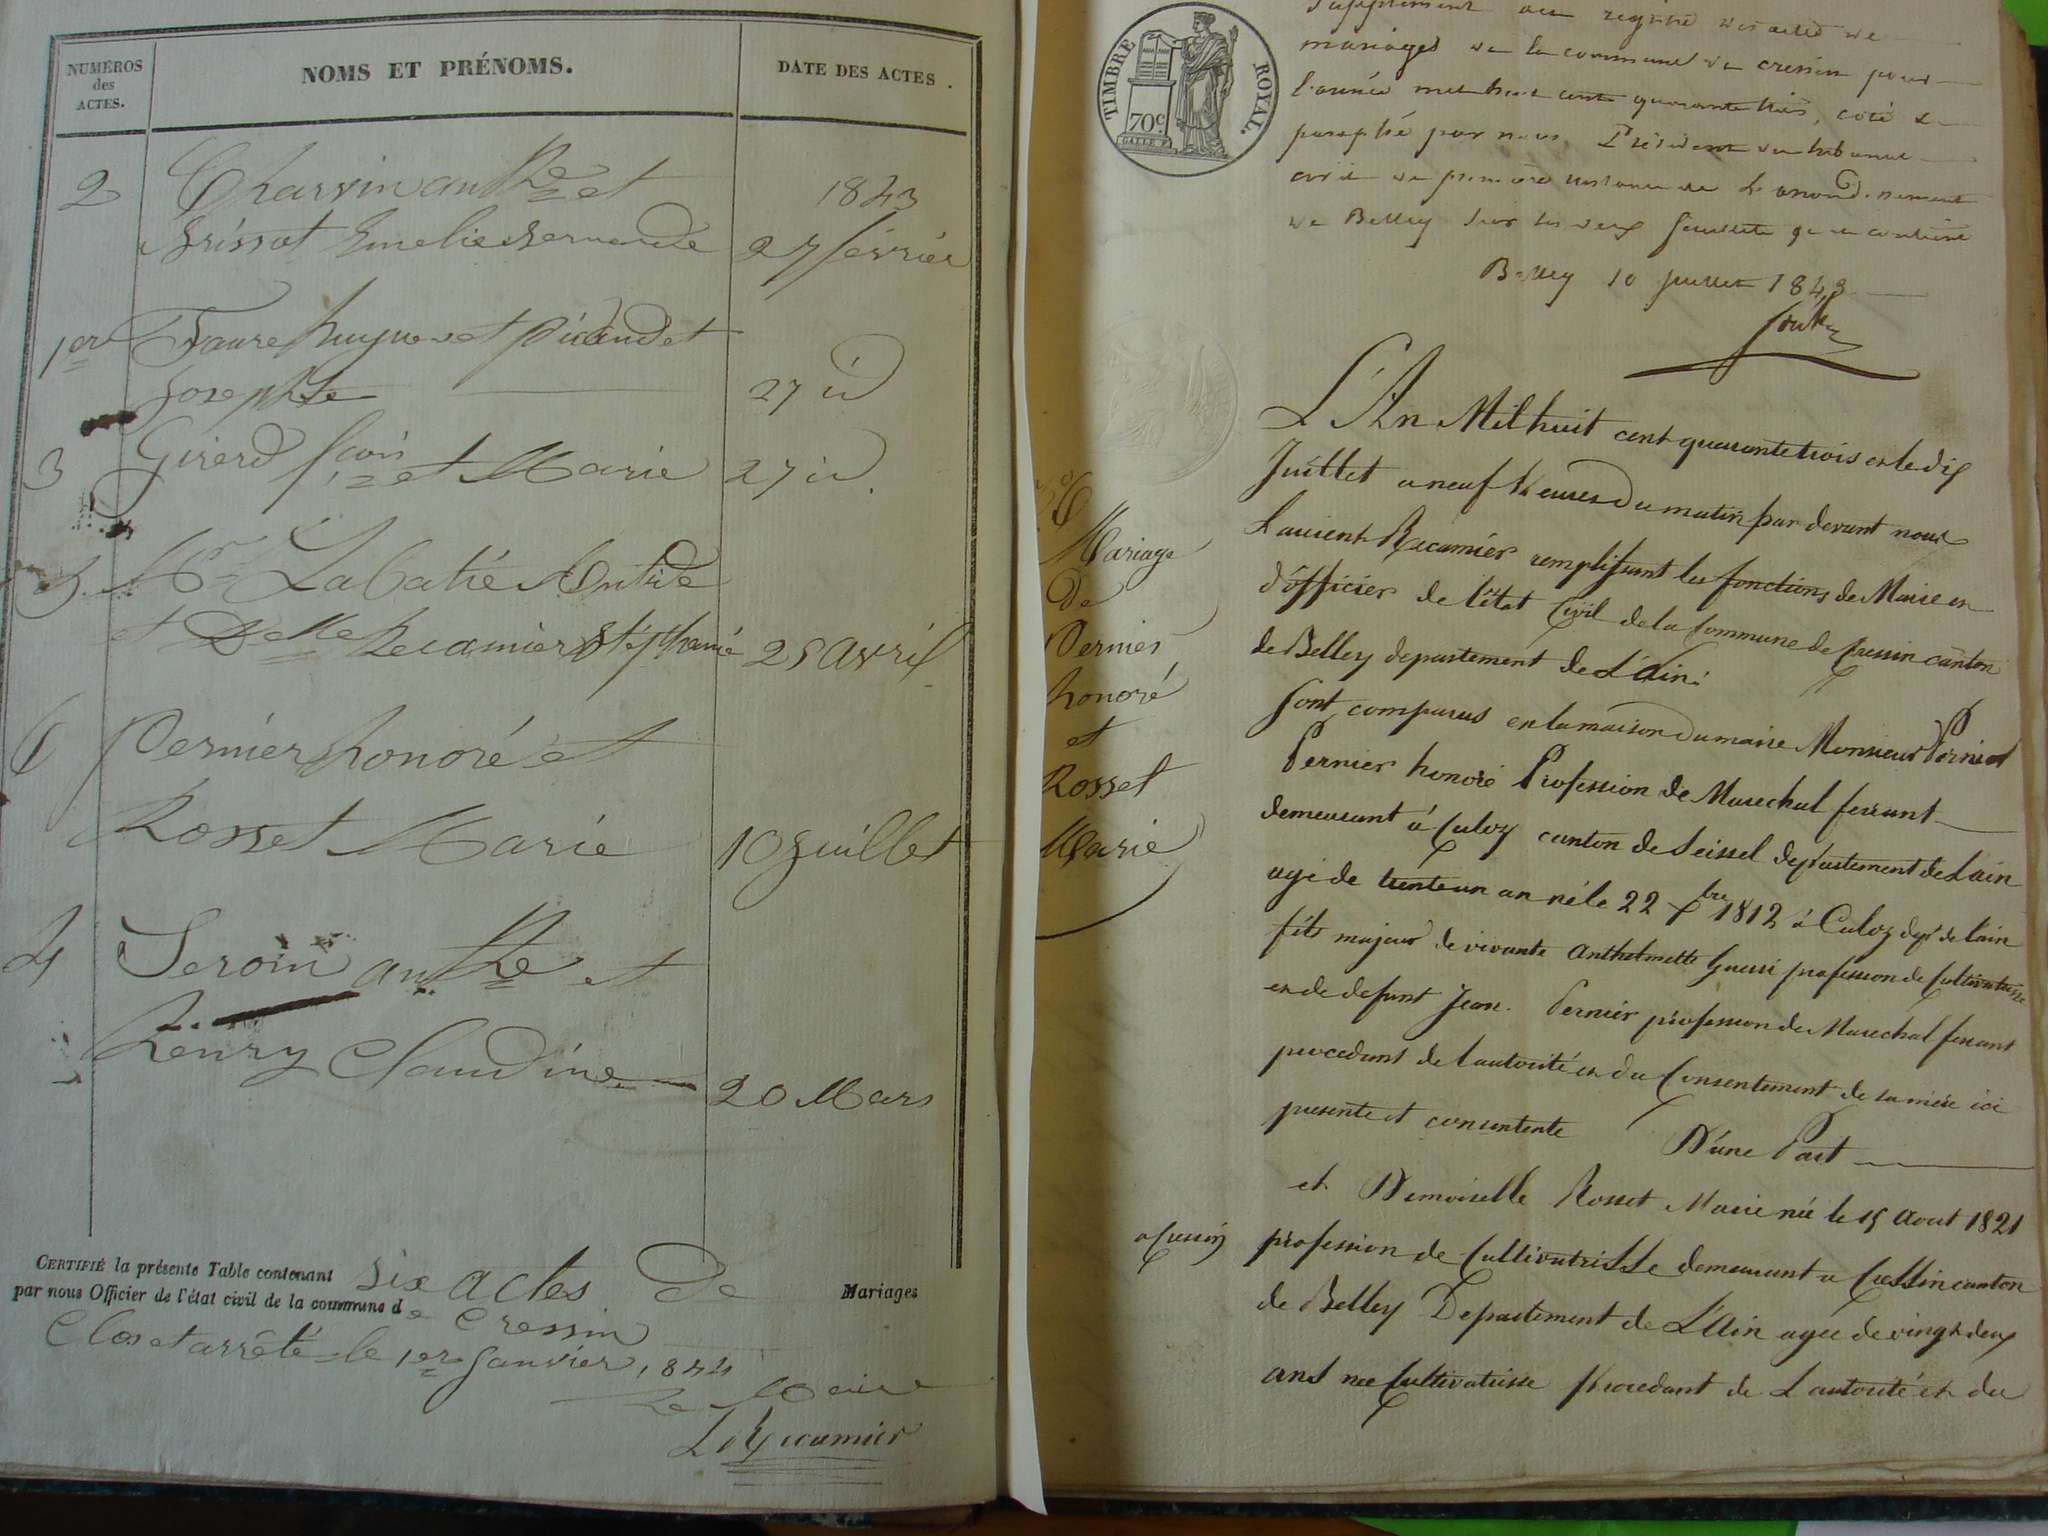 NUMÉROS
des
ACTES.
NOMS ET PRÉNOMS.
DATE DES ACTES.
2 Charvin anthe et 1843
Brissot Emelie Bernarde 27 février
1er Faure hugues et
Josephte 27 id
3 Girerd et Marie 27 id.
5 Mr Labatie
et Delle Recamier Stéphanie 25 avril
6 Pernier honoré et
Rosset Marie 10 Juillet
4 Seroin anthe et
henry Claudine 20 Mars
CERTIFIÉ la présente Table contenant six actes de Mariages
par nous Officier de l'état civil de la commune de Cressin
Clos et arrêté le 1er Janvier 1844
Le Maire
Ls Recamier
TIMBRE ROYAL.
70c.
Supplément au registre des actes de
mariages de la commune de cressin pour
l'année mil huit cent quarante trois, coté &
paraphé par nous Président du tribunal
civil de première instance de L'arrondissement
de Belley sur les deux feuillets qu'il contient
Belley 10 Juillet 1843
Mariage
de
Pernier
honoré
et
Rosset
Marie
L'An Mil huit cent quarante trois et le dix
Juillet a neuf heures du matin par devant nous
Laurent Recamier remplissant les fonctions de Maire en
d'officier de l'état Civil de la Commune de Cressin canton
de Belley departement de L'ain:
Sont comparus en la maison du maire Monsieur Pernier
Pernier honoré Profession de Marechal ferrant
demeurant à Culoz canton de Seissel departement de Lain
agé de trente un an né le 22 xbre 1812 à Culoz dept de lain
fils majeur de vivante Anthelmette Guerri profession de Cultivatrisse
et de defunt Jean Pernier profession de Marechal ferrant
procedant de l'autorité et du Consentement de sa mère ici
presente et consentente D'une Part
et Demoiselle Rosset Marie née le 15 Aout 1821
a Cressin
profession de Cultivatrisse demeurant a Cressin canton
de Belley Departement de L'Ain agée de vingt deux
ans née Cultivatrisse Procedant de L'autorité et du